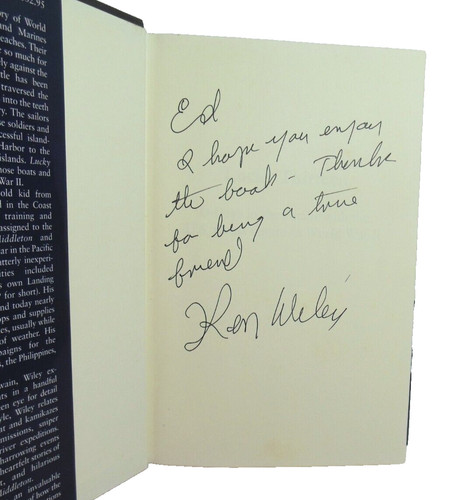 32.95
ory of World
and Marines
eaches. Their
e so much for
ly against the
tle has been
traversed the
into the teeth
y. The sailors
se soldiers and
cessful island-
Harbor to the
islands. Lucky
hose boats and
War II.
old kid from
d in the Coast
training and
assigned to the
Middleton and
ar in the Pacific
utterly inexperi-
ties included
s own Landing
for short). His
nd today nearly
ops and supplies
es, usually while
of weather. His
paigns for the
s, the Philippines,
wain, Wiley ex-
nts in a handful
en eye for detail
yle, Wiley relates
nt and kamikazes
missions, sniper
river expeditions.
harrowing events
heartfelt stories of
t, and hilarious
Middleton.
an invaluable
of how the
Ed
I hope you enjoy
the book - Thanks
for being a true
friend
Ken Wiley